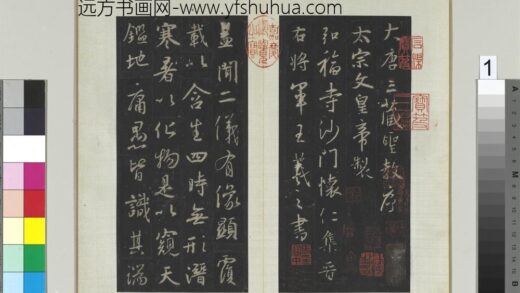 远方书画网-www.yfshuhua.com
大唐三藏聖教序
太宗文皇帝製
弘福寺沙門懷仁集晉
右將軍王羲之書
蓋聞二儀有像顯覆
載以含生四時無形潛
寒暑以化物是以窺天
鑑地庸愚皆識其端
1
A
M
B